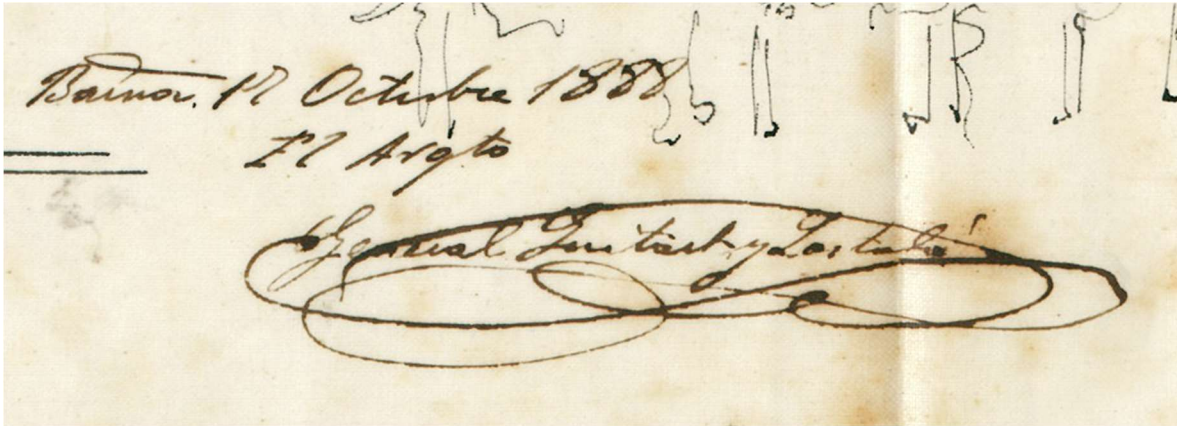 Barna. 17 Octubre 1888
El Arqto
General Guitart y Lostaló